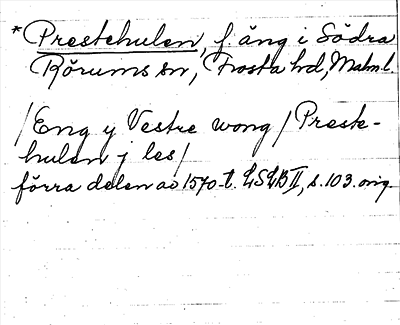 *Prestehulen, f. äng i Södra
Rörums sn, Frosta hd, Malm.l.
/Eng y Vestre wong/Preste-
hulen j les/
förra delen av 1570-t. LSLB II, s. 103. orig.